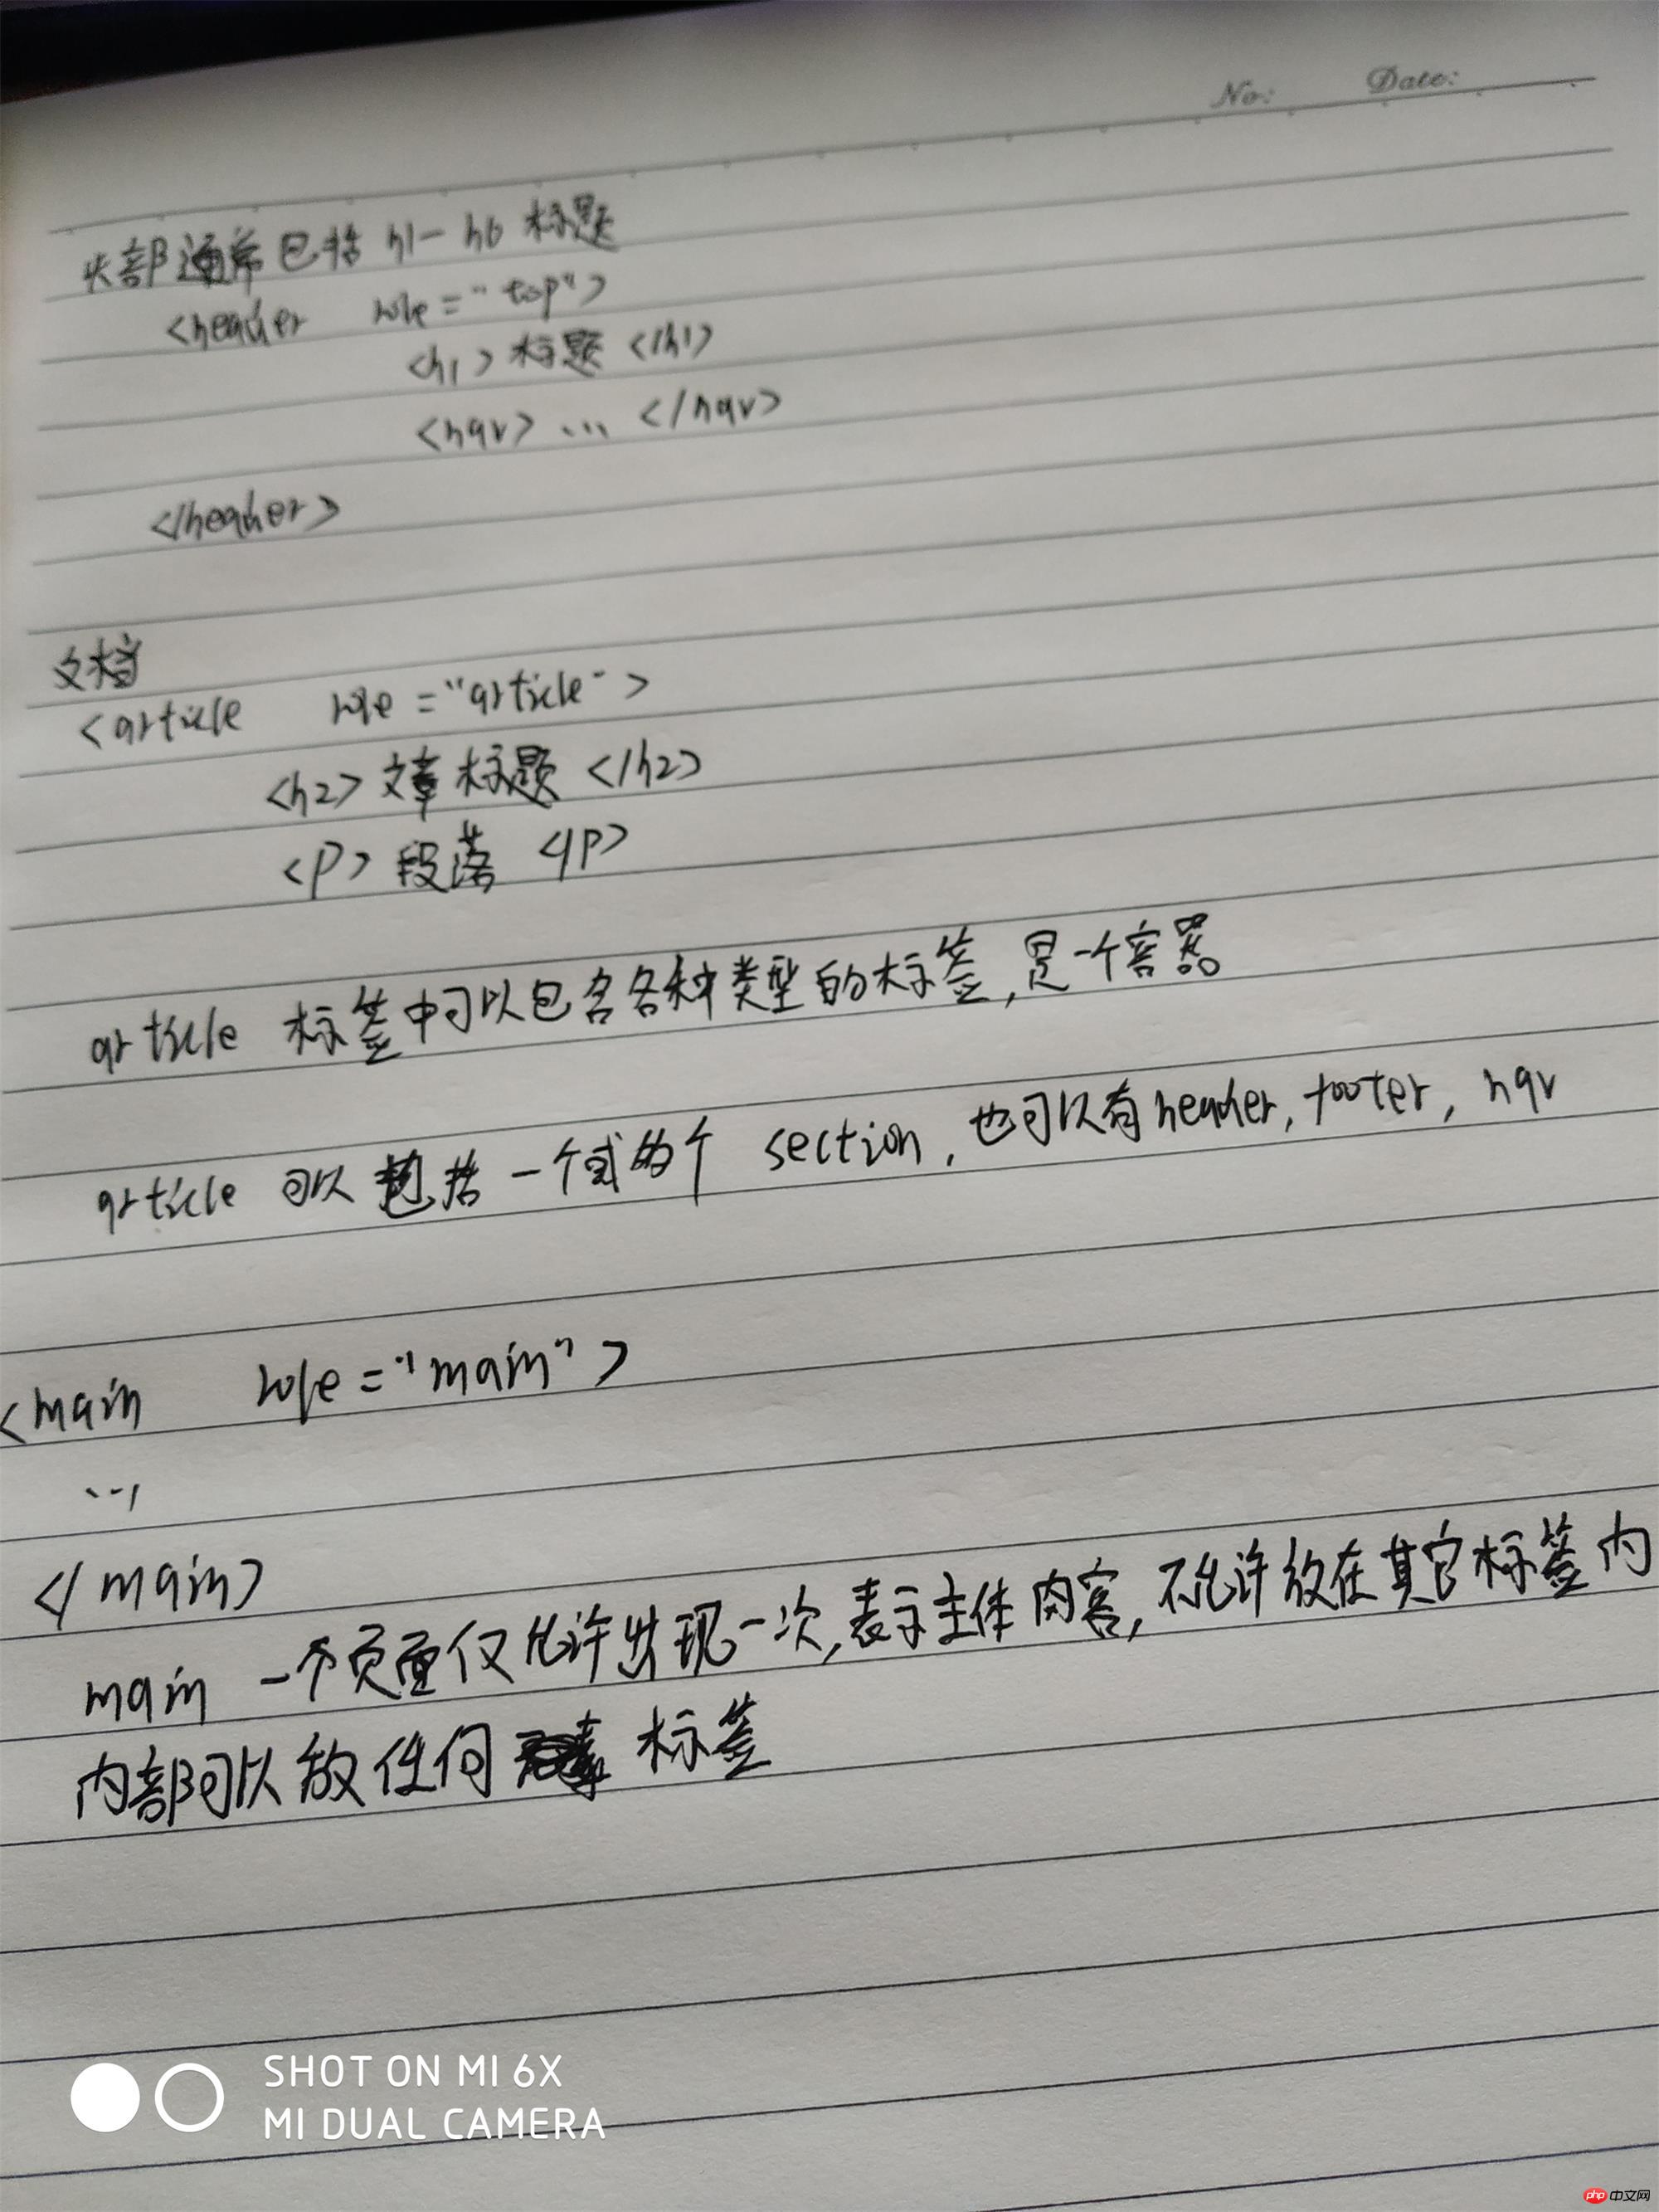 No: Date:
头部通常包括 h1-h6 标题
<header role="top">
<h1>标题</h1>
<nav>...</nav>
</header>
文档
<article role="article">
<h2>文章标题</h2>
<p>段落</p>
article 标签中可以包含各种类型的标签,是一个容器
article 可以包括一个或多个 section,也可以有header, footer, nav
<main role="main">
...
</main>
main 一个页面仅允许出现一次,表示主体内容,不允许放在其它标签内
内部可以放任何 标签
SHOT ON MI 6X
MI DUAL CAMERA
php 中文网